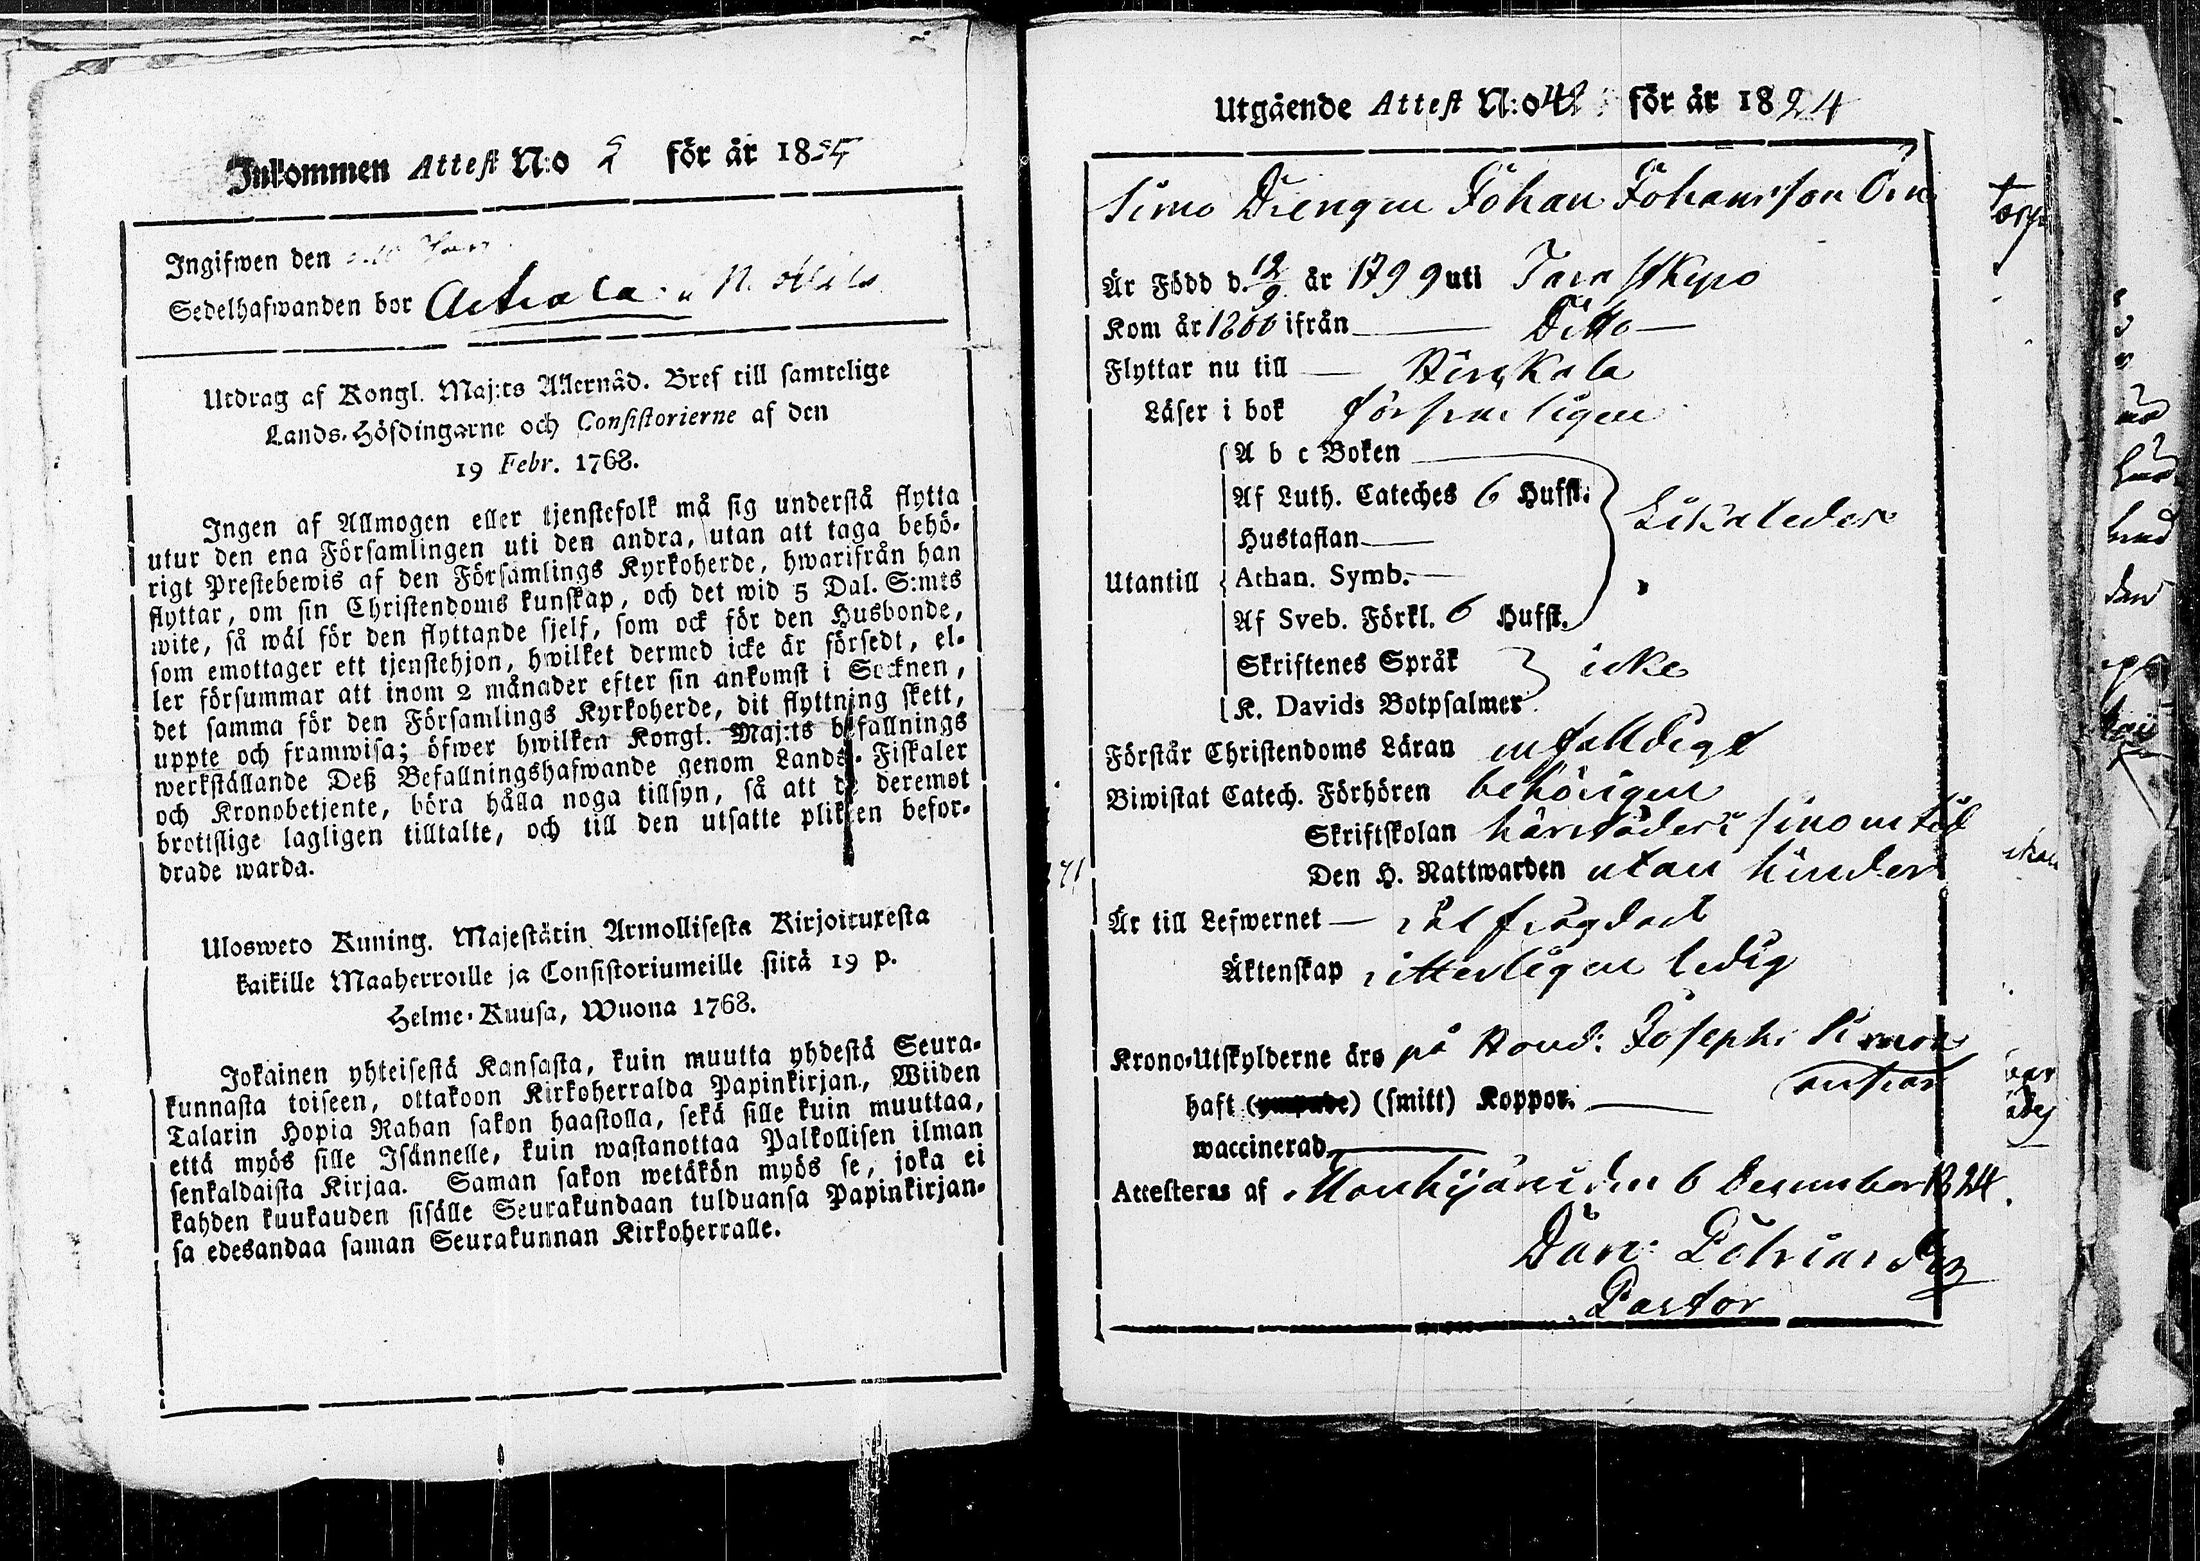 Inkommen Attest N:o 2 för år 1825
Ingifwen den
Sedelhafwanden bor
Utdrag af Kongl. Maj:ts Allernåd. Bref till samtelige
Lands-Höfdingarne och Consistorierne af den
19 Febr. 1768.
Ingen af Allmogen eller tjenstefolk må sig understå flytta
utur den ena Församlingen uti den andra, utan att taga behö-
rigt Prestebewis af den Församlings Kyrkoherde, hwarifrån han
flyttar, om sin Christendoms kunskap, och det wid 5 Dal. S:mts
wite, så wäl för den flyttande sjelf, som ock för den Husbonde,
som emottager ett tjenstehjon, hwilket dermed icke är försedt, el-
ler försummar att inom 2 månader efter sin ankomst i Socknen,
det samma för den Församlings Kyrkoherde, dit flyttning skett,
uppte och framwisa; öfwer hwilken Kongl. Maj:ts befallnings
werkställande Deß Befallningshafwande genom Lands-Fiskaler
och Kronobetjente, böra hålla noga tillsyn, så att de deremot
brottslige lagligen tilltalte, och till den utsatte plikten befor-
drade warda.
Ulosweto Kuning. Majestätin Armollisesta Kirjoituxesta
kaikille Maaherroille ja Consistoriumeille siitä 19 p.
Helme-Kuusa, Wuona 1768.
Jokainen yhteisestä Kansasta, kuin muutta yhdestä Seura-
kunnasta toiseen, ottakoon Kirkoherralda Papinkirjan, Wiiden
Talarin Hopia Rahan sakon haastolla, sekä sille kuin muuttaa,
että myös sille Isännelle, kuin wastanottaa Palkollisen ilman
senkaldaista Kirjaa. Saman sakon wetäkön myös se, joka ei
kahden kuukauden sisälle Seurakundaan tulduansa Papinkirjan-
sa edesandaa saman Seurakunnan Kirkoherralle.
Utgående Attest N:o 42 för år 1824
Drengen Johan Johansson
Är Född d. 12/9 år 1799 uti
Kom år 1800 ifrån Ditto
Flyttar nu till
Läser i bok försvarligen
A b c Boken
Af Luth. Cateches 6 Hufst.
Likaledes
Hustaflan
Utantill Athan. Symb.
Af Sveb. Förkl. 6 Hufst.
Skriftenes Språk
icke
K. Davids Botpsalmer
Förstår Christendoms Läran enfalldigt
Biwistat Catech. Förhören behörigen
Skriftskolan härstädes i sinom tid
Den H. Nattwarden utan hinder
Är till Lefwernet wälfrägdad
Äktenskap witterligen ledig
Krono-Utskylderne äro på Bond: Joseph Simons
ansvar
haft (ympade) (smitt) Koppor.
waccinerad
Attesteras af Mouhijärvi den 6 December 1824.
Dan:
Pastor